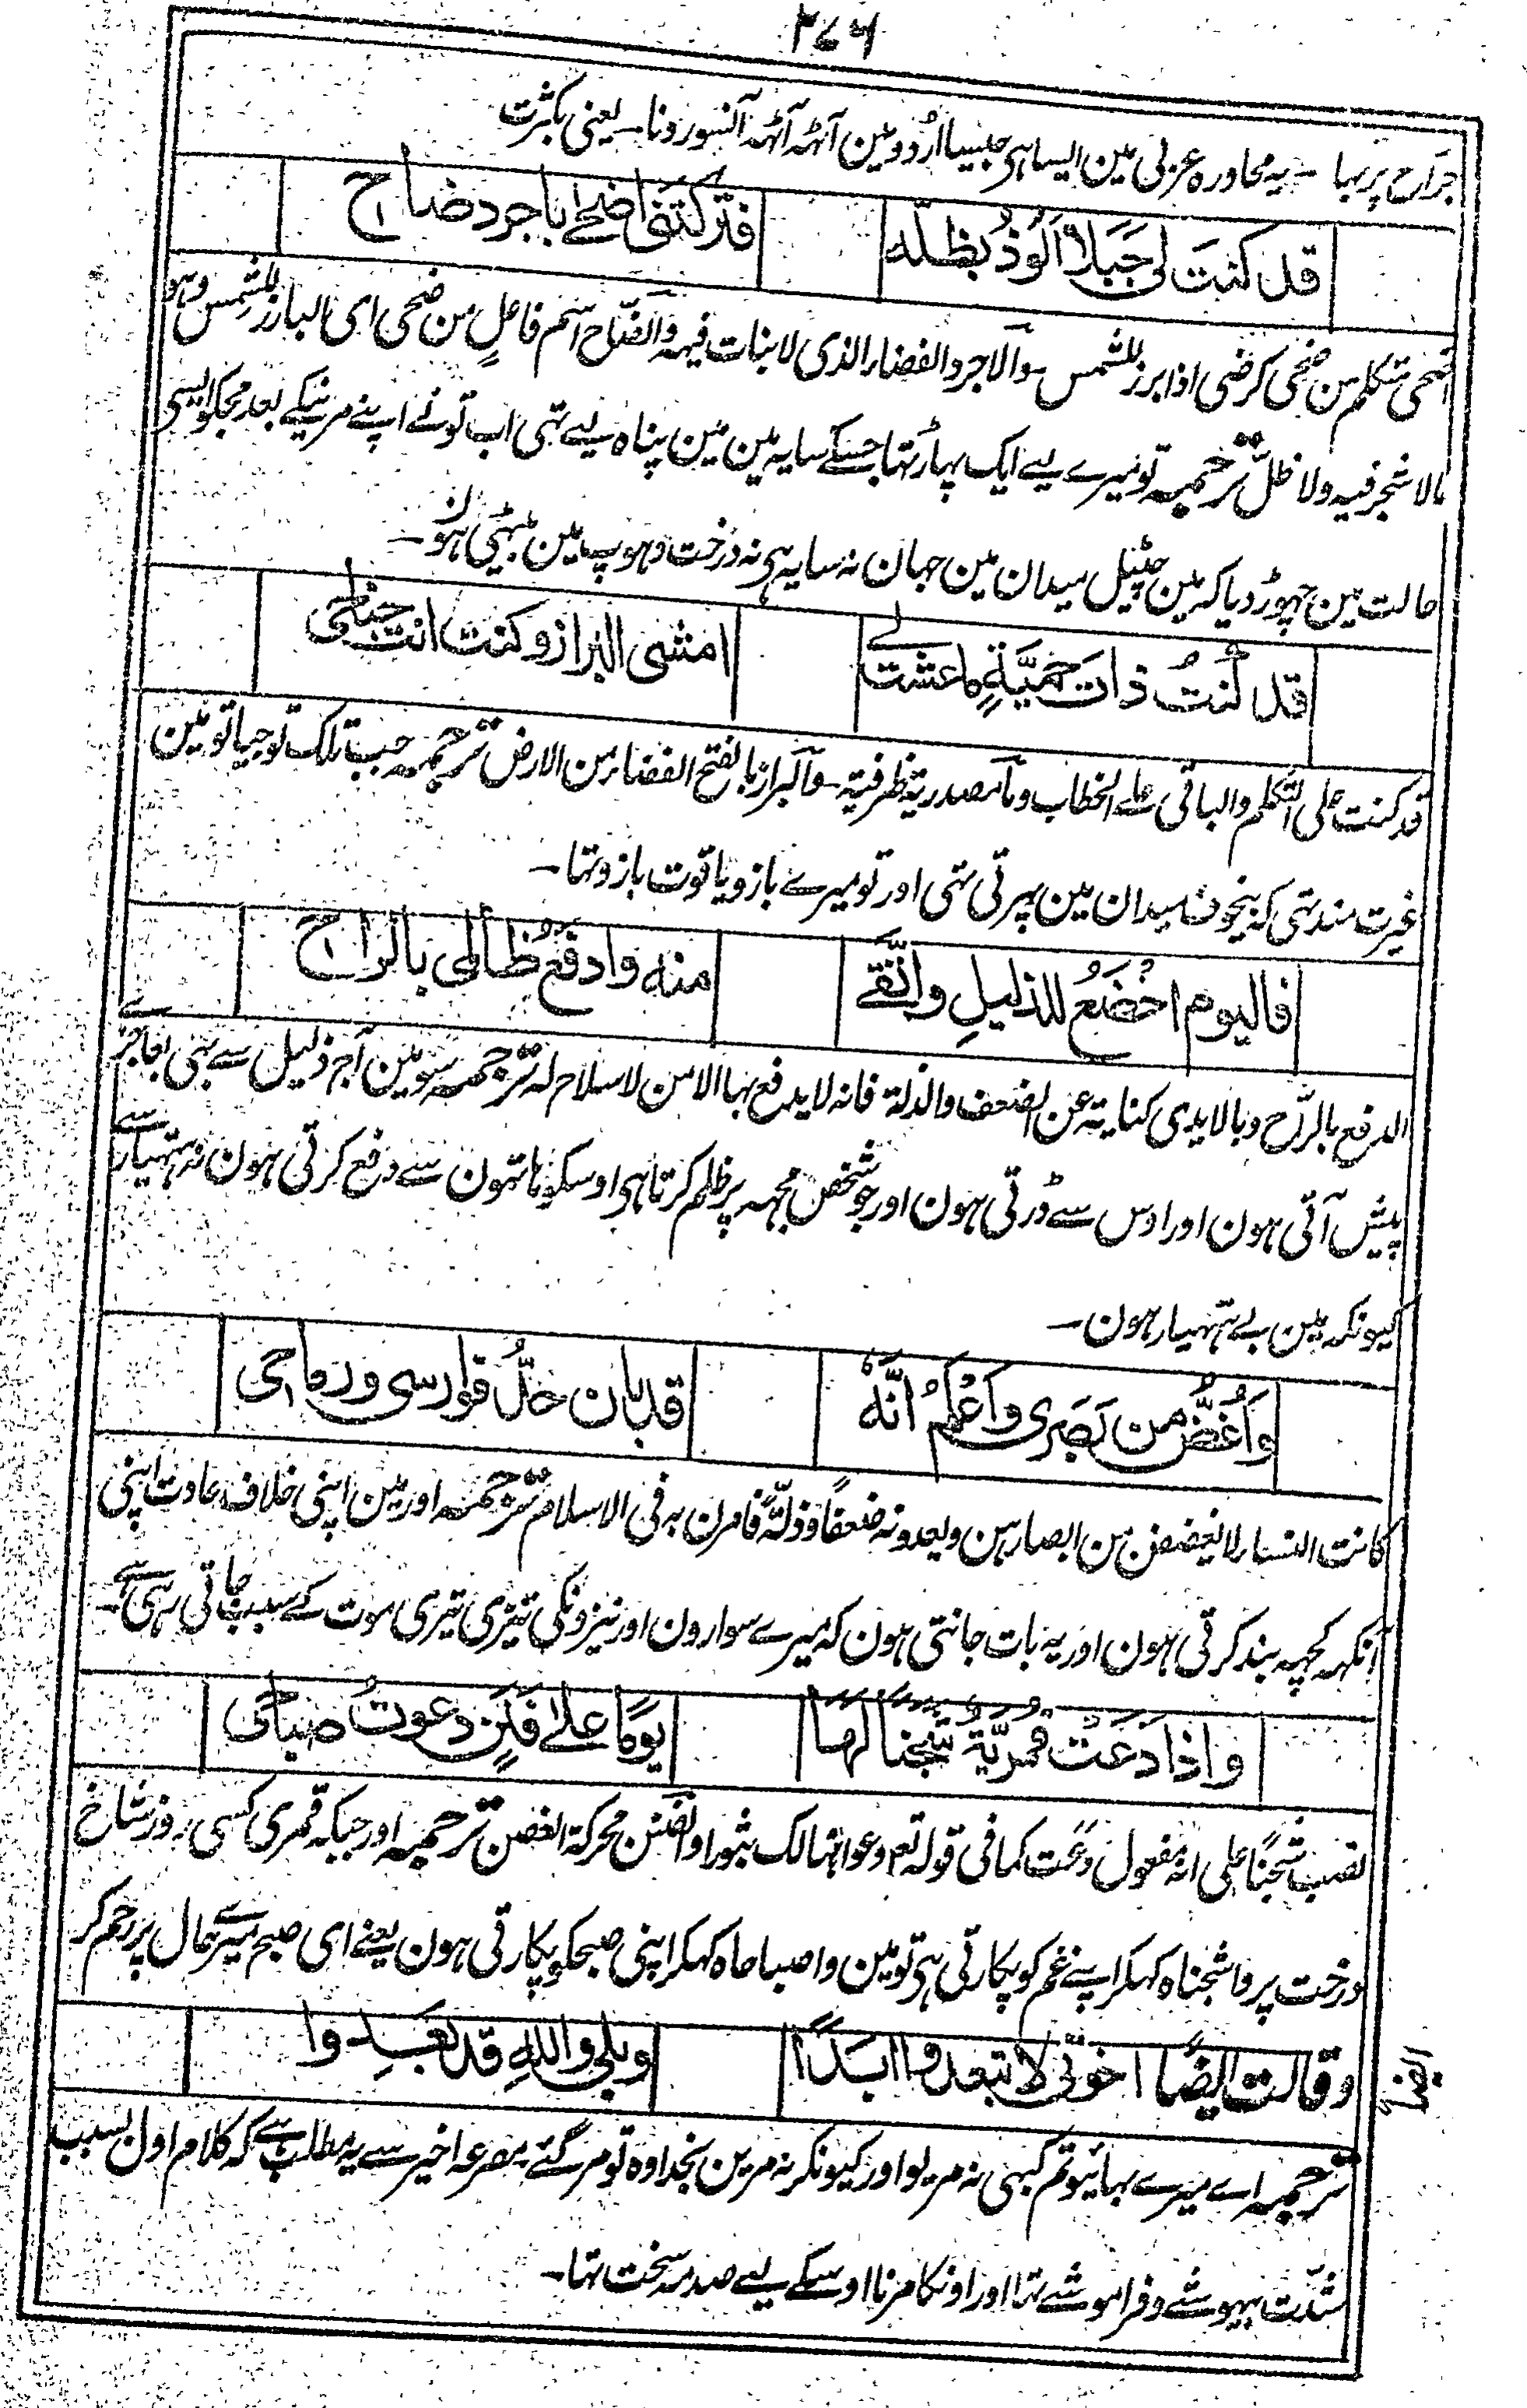 ۳۷۶
جراح پر بہا ۔ یہ محاورہ عربی مین ایسا ہی جیسا اردو مین آٹھہ آٹھہ آنسو رونا ۔ یعنی بکثرت
قد كنتَ لى جَبَلاً اَلوُذُ بظلّه فتركتنى اضحٰے باجرد ضاح
اضحی متکلم من ضحی کرضی اذا برز للشمس والاجرد الفضاء الذی لا نبات فیہ والضاح اسم فاعل من ضحی ای البارز للشمس وہو
مالا شجر فیہ ولا ظل ترجمہ تو میرے لیے ایک پہاڑ تہا جسکے سایہ مین مین پناہ لیے تہی اب تونے اپنے مرنیکے بعد مجکو ایسی
حالت مین چہوڑ دیا کہ مین چٹیل میدان مین جہان نہ سایہ ہی نہ درخت دہوپ مین بیٹہی ہون ۔
قد كُنتُ ذات حَمِيَّةٍ ما عشت لے امشى البراز وكنت انت جناحى
قد کنت علی التکلم والباقی علے الخطاب وما مصدریۃ ظرفیۃ ۔ والبراز بالفتح الفضاء من الارض ترجمہ جب تلک تو جیا تو مین
غیرت مند تہی کہ بیخوف میدان مین پہرتی تہی اور تو میرے بازو یا قوت بازو تہا ۔
فاليوم اخضَعُ للذليلِ واتَّقے منه وادفعُ ظالمى بالراح
الدفع بالراح وبالایدی کنایۃ عن الضعف والذلۃ فانہ لا یدفع بہا الا من لا سلاح لہ ترجمہ سو مین آج ذلیل سے بہی بعاجزی
پیش آتی ہون اور اوس سے ڈرتی ہون اور جو شخص مجہہ پر ظلم کرتا ہی اوسکو ہاتہون سے دفع کرتی ہون نہ ہتہیار سے
کیونکہ مین بے ہتہیار ہون ۔
وَاَغُضُّ من بَصَرى وَاَعْلَمُ انَّه قد بان حدُّ فوارسى ورماحى
کانت النساء لا یغضضن من ابصارہن ویعدونہ ضعفاً وذلۃً فامرن بہ فی الاسلام ترجمہ اور مین اپنی خلاف عادت اپنی
آنکہہ کچہہ بند کرتی ہون اور یہ بات جانتی ہون کہ میرے سوارون اور نیزونکی تیزی تیری موت کے سبب جاتی رہی ہے ۔
واذا دَعَتْ قمريَّةٌ شَجَنًا لَهَا يومًا علے فَنَنٍ دعوتُ صباحى
نصب شجنًا علی انہ مفعول دعت کما فی قولہ تع دعوا ہنالک ثبورا والفنن محرکۃ الغصن ترجمہ اور جبکہ قمری کسی روز شاخ
درخت پر واشجناہ کہکر اپنے غم کو پکارتی ہی تو مین واصباحاہ کہکر اپنی صبحکو پکارتی ہون یعنے ای صبح میرے حال پر رحم کر
وقالت ايضًا اخوتى لا تبعدوا ابدًا وبلى والله قد بَعِدوا
ایضًا
ترجمہ اے میرے بہائیو تم کبہی نہ مریو اور کیونکر نہ مرین بخدا وہ تو مر گئے مصرعہ اخیر سے یہ مطلب ہے کہ کلام اول بسبب
شدّت بیہوشے وفراموشے تہا اور اونکا مرنا اوسکے لیے صدمہ سخت تہا ۔